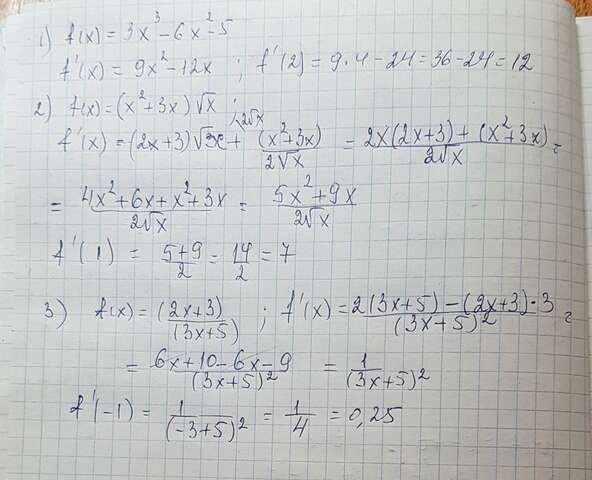 1) f(x) = 3x³ - 6x² - 5
f'(x) = 9x² - 12x ; f'(2) = 9·4 - 24 = 36 - 24 = 12
2) f(x) = (x² + 3x)√x ;
f'(x) = (2x+3)√x^{\2√x} + (x²+3x)/2√x = 2x(2x+3) + (x²+3x)/2√x =
= 4x² + 6x + x² + 3x/2√x = 5x² + 9x/2√x
f'(1) = 5+9/2 = 14/2 = 7
3) f(x) = (2x+3)/(3x+5) ; f'(x) = 2(3x+5) - (2x+3)·3/(3x+5)² =
= 6x+10-6x-9/(3x+5)² = 1/(3x+5)²
f'(-1) = 1/(-3+5)² = 1/4 = 0,25